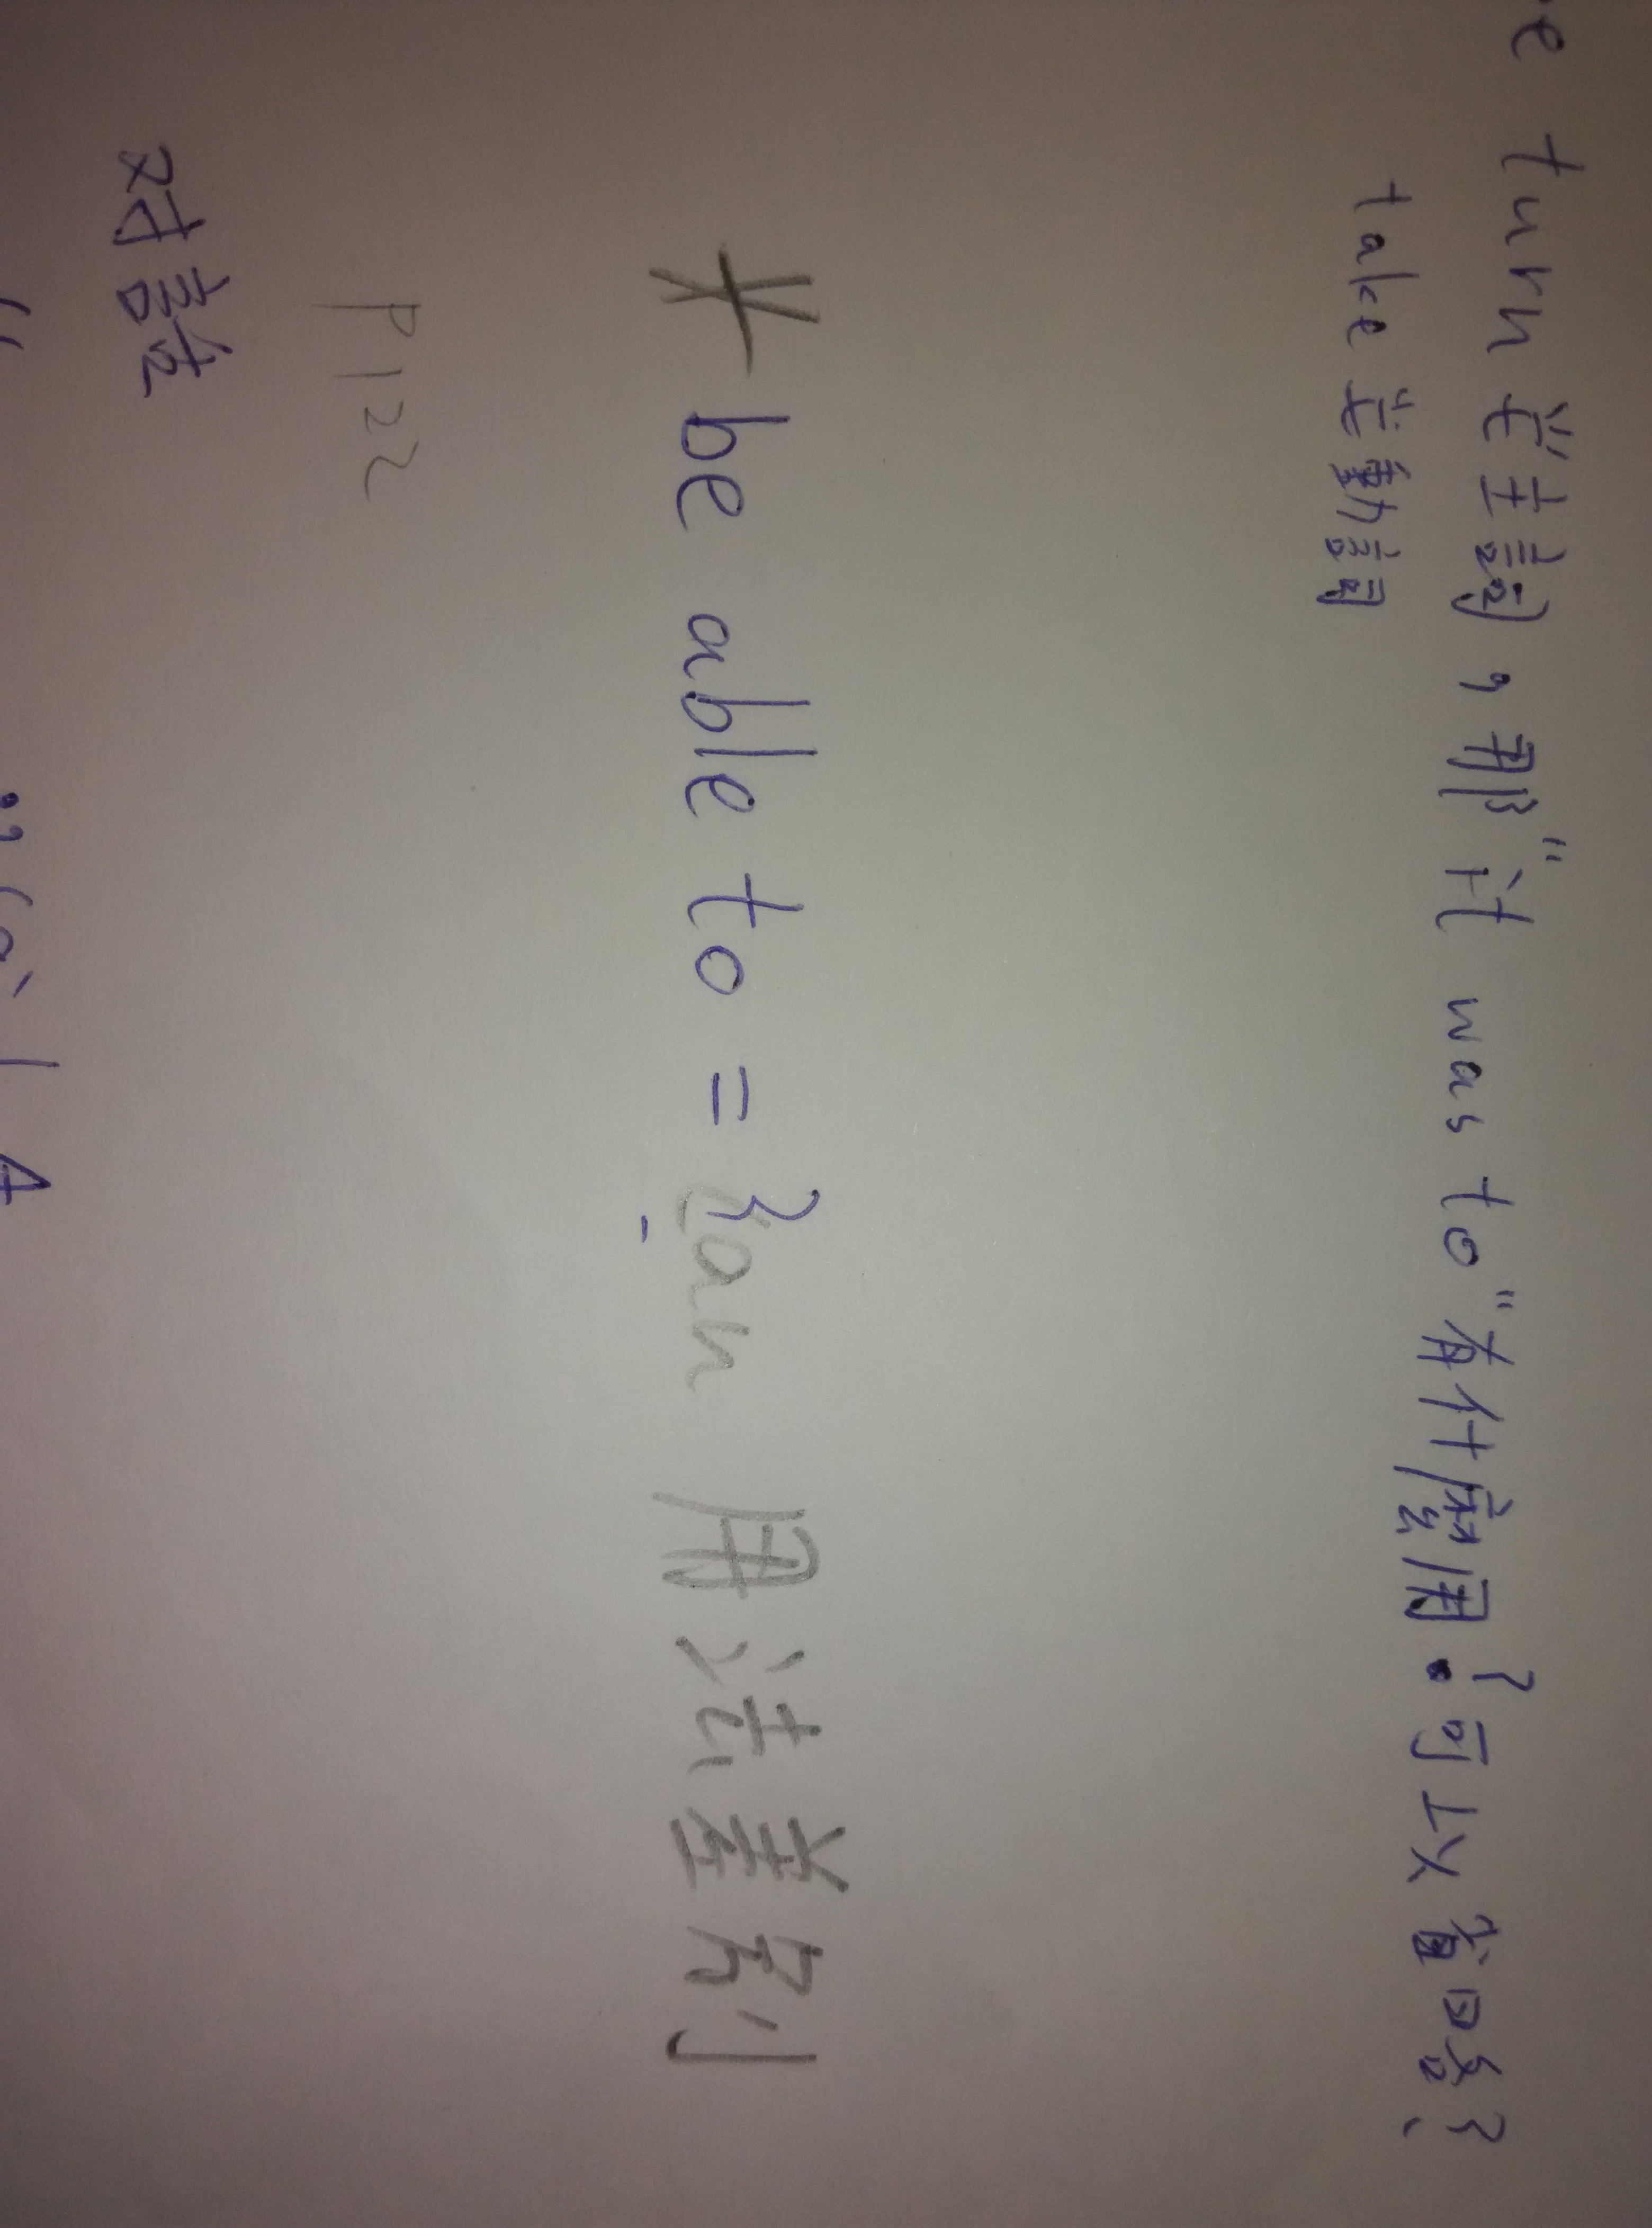 turn 當主詞，那"it was to"有什麼用？可以省略？
take 當動詞
* be able to = ? can 用法差別
P122
对話